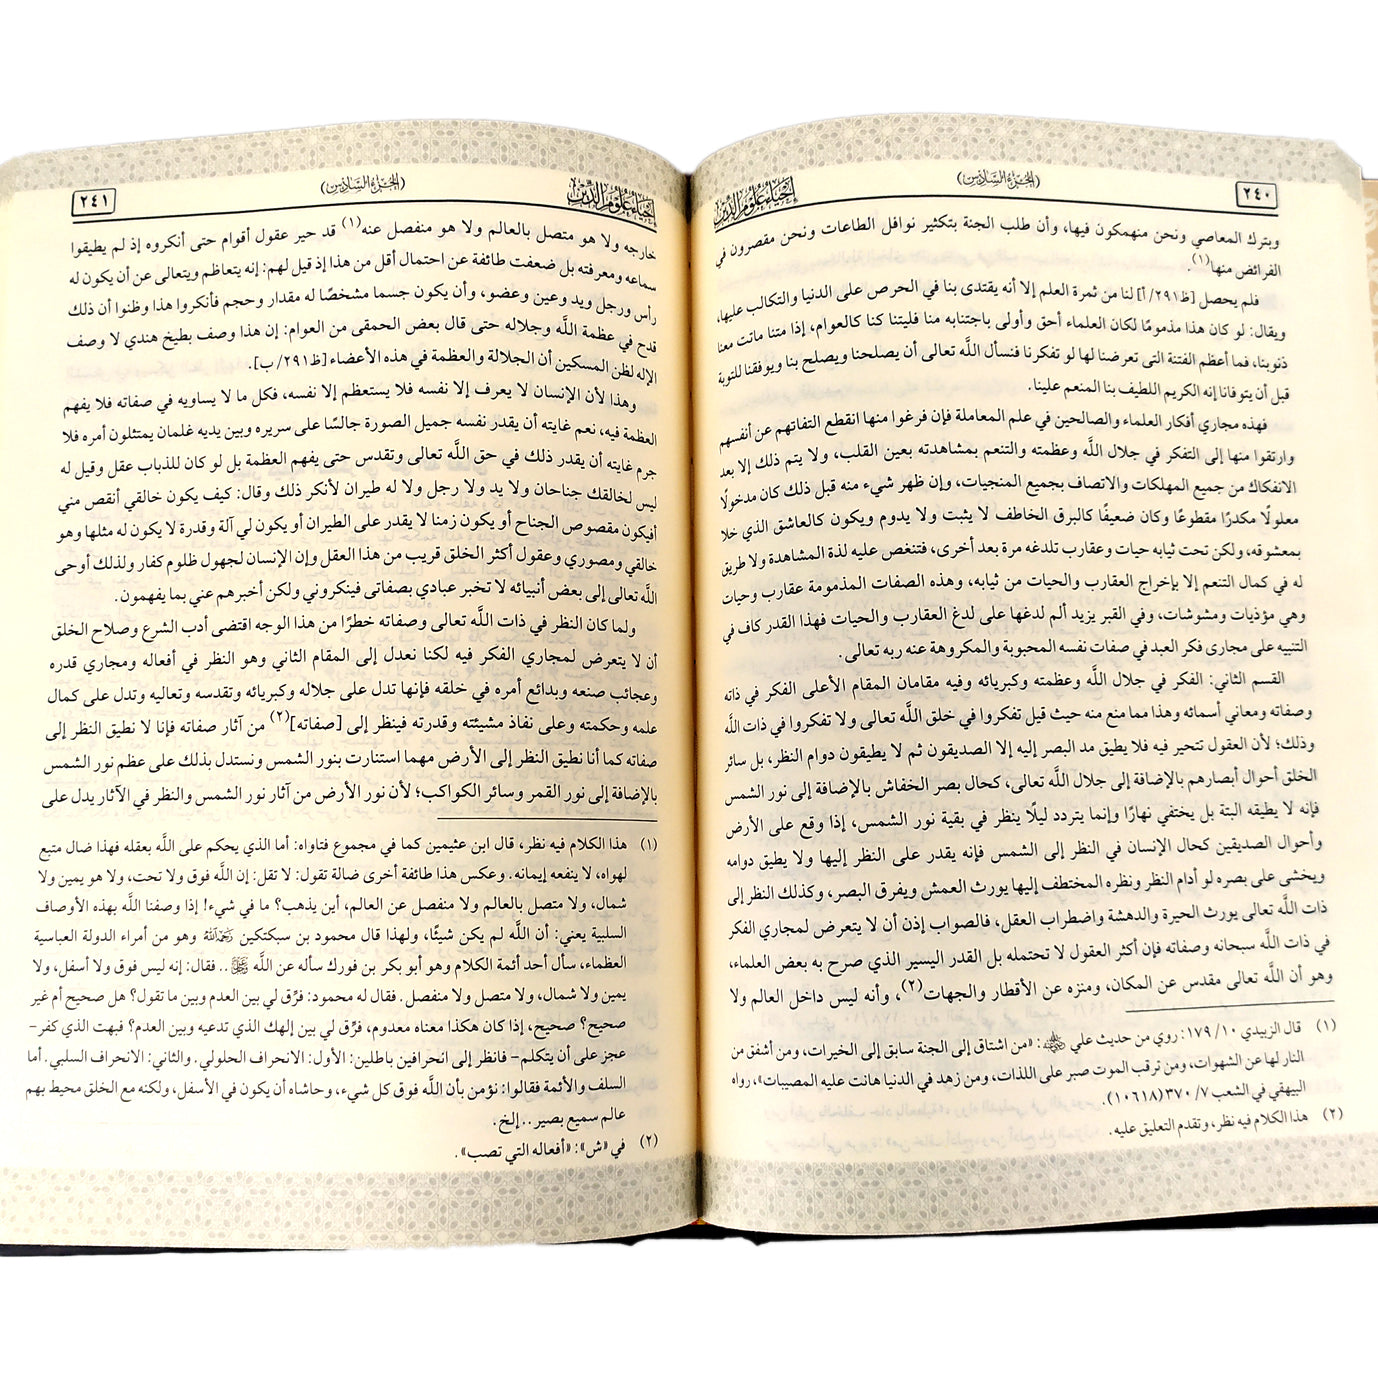 ٢٤٠
(الجزء السادس)
إحياء علوم الدين
وبترك المعاصي ونحن منهمكون فيها، وأن طلب الجنة بتكثير نوافل الطاعات ونحن مقصرون في
الفرائض منها(١).
فلم يحصل [ظ٢٩١/ أ] لنا من ثمرة العلم إلا أنه يقتدى بنا في الحرص على الدنيا والتكالب عليها،
ويقال: لو كان هذا مذمومًا لكان العلماء أحق وأولى باجتنابه منا فليتنا كنا كالعوام، إذا متنا ماتت معنا
ذنوبنا، فما أعظم الفتنة التى تعرضنا لها لو تفكرنا فنسأل اللَّه تعالى أن يصلحنا ويصلح بنا ويوفقنا للتوبة
قبل أن يتوفانا إنه الكريم اللطيف بنا المنعم علينا.
فهذه مجاري أفكار العلماء والصالحين في علم المعاملة فإن فرغوا منها انقطع التفاتهم عن أنفسهم
وارتقوا منها إلى التفكر في جلال اللَّه وعظمته والتنعم بمشاهدته بعين القلب، ولا يتم ذلك إلا بعد
الانفكاك من جميع المهلكات والاتصاف بجميع المنجيات، وإن ظهر شيء منه قبل ذلك كان مدخولًا
معلولًا مكدرًا مقطوعًا وكان ضعيفًا كالبرق الخاطف لا يثبت ولا يدوم ويكون كالعاشق الذي خلا
بمعشوقه، ولكن تحت ثيابه حيات وعقارب تلدغه مرة بعد أخرى، فتنغص عليه لذة المشاهدة ولا طريق
له في كمال التنعم إلا بإخراج العقارب والحيات من ثيابه، وهذه الصفات المذمومة عقارب وحيات
وهي مؤذيات ومشوشات، وفي القبر يزيد ألم لدغها على لدغ العقارب والحيات فهذا القدر كاف في
التنبيه على مجارى فكر العبد في صفات نفسه المحبوبة والمكروهة عنه ربه تعالى.
القسم الثاني: الفكر في جلال اللَّه وعظمته وكبريائه وفيه مقامان المقام الأعلى الفكر في ذاته
وصفاته ومعاني أسمائه وهذا مما منع منه حيث قيل تفكروا في خلق اللَّه تعالى ولا تفكروا في ذات اللَّه
وذلك؛ لأن العقول تتحير فيه فلا يطيق مد البصر إليه إلا الصديقون ثم لا يطيقون دوام النظر، بل سائر
الخلق أحوال أبصارهم بالإضافة إلى جلال اللَّه تعالى، كحال بصر الخفاش بالإضافة إلى نور الشمس
فإنه لا يطيقه البتة بل يختفي نهارًا وإنما يتردد ليلًا ينظر في بقية نور الشمس، إذا وقع على الأرض
وأحوال الصديقين كحال الإنسان في النظر إلى الشمس فإنه يقدر على النظر إليها ولا يطيق دوامه
ويخشى على بصره لو أدام النظر ونظره المختطف إليها يورث العمش ويفرق البصر، وكذلك النظر إلى
ذات اللَّه تعالى يورث الحيرة والدهشة واضطراب العقل، فالصواب إذن أن لا يتعرض لمجاري الفكر
في ذات اللَّه سبحانه وصفاته فإن أكثر العقول لا تحتمله بل القدر اليسير الذي صرح به بعض العلماء،
وهو أن اللَّه تعالى مقدس عن المكان، ومنزه عن الأقطار والجهات(٢)، وأنه ليس داخل العالم ولا
(١) قال الزبيدي ١٠/ ١٧٩: روي من حديث علي ﵁: «من اشتاق إلى الجنة سابق إلى الخيرات، ومن أشفق من
النار لها عن الشهوات، ومن ترقب الموت صبر على اللذات، ومن زهد في الدنيا هانت عليه المصيبات»، رواه
البيهقي في الشعب ٧/ ٣٧٠(١٠٦١٨).
(٢) هذا الكلام فيه نظر، وتقدم التعليق عليه.
إحياء علوم الدين
(الجزء السادس)
٢٤١
خارجه ولا هو متصل بالعالم ولا هو منفصل عنه(١) قد حير عقول أقوام حتى أنكروه إذ لم يطيقوا
سماعه ومعرفته بل ضعفت طائفة عن احتمال أقل من هذا إذ قيل لهم: إنه يتعاظم ويتعالى عن أن يكون له
رأس ورجل ويد وعين وعضو، وأن يكون جسما مشخصًا له مقدار وحجم فأنكروا هذا وظنوا أن ذلك
قدح في عظمة اللَّه وجلاله حتى قال بعض الحمقى من العوام: إن هذا وصف بطيخ هندي لا وصف
الإله لظن المسكين أن الجلالة والعظمة في هذه الأعضاء [ظ٢٩١/ ب].
وهذا لأن الإنسان لا يعرف إلا نفسه فلا يستعظم إلا نفسه، فكل ما لا يساويه في صفاته فلا يفهم
العظمة فيه، نعم غايته أن يقدر نفسه جميل الصورة جالسًا على سريره وبين يديه غلمان يمتثلون أمره فلا
جرم غايته أن يقدر ذلك في حق اللَّه تعالى وتقدس حتى يفهم العظمة بل لو كان للذباب عقل وقيل له
ليس لخالقك جناحان ولا يد ولا رجل ولا له طيران لأنكر ذلك وقال: كيف يكون خالقي أنقص مني
أفيكون مقصوص الجناح أو يكون زمنا لا يقدر على الطيران أو يكون لي آلة وقدرة لا يكون له مثلها وهو
خالقي ومصوري وعقول أكثر الخلق قريب من هذا العقل وإن الإنسان لجهول ظلوم كفار ولذلك أوحى
اللَّه تعالى إلى بعض أنبيائه لا تخبر عبادي بصفاتى فينكروني ولكن أخبرهم عني بما يفهمون.
ولما كان النظر في ذات اللَّه تعالى وصفاته خطرًا من هذا الوجه اقتضى أدب الشرع وصلاح الخلق
أن لا يتعرض لمجاري الفكر فيه لكنا نعدل إلى المقام الثاني وهو النظر في أفعاله ومجاري قدره
وعجائب صنعه وبدائع أمره في خلقه فإنها تدل على جلاله وكبريائه وتقدسه وتعاليه وتدل على كمال
علمه وحكمته وعلى نفاذ مشيئته وقدرته فينظر إلى [صفاته](٢) من آثار صفاته فإنا لا نطيق النظر إلى
صفاته كما أنا نطيق النظر إلى الأرض مهما استنارت بنور الشمس ونستدل بذلك على عظم نور الشمس
بالإضافة إلى نور القمر وسائر الكواكب؛ لأن نور الأرض من آثار نور الشمس والنظر في الآثار يدل على
(١) هذا الكلام فيه نظر، قال ابن عثيمين كما في مجموع فتاواه: أما الذي يحكم على اللَّه بعقله فهذا ضال متبع
لهواه، لا ينفعه إيمانه. وعكس هذا طائفة أخرى ضالة تقول: لا تقل: إن اللَّه فوق ولا تحت، ولا هو يمين ولا
شمال، ولا متصل بالعالم ولا منفصل عن العالم، أين يذهب؟ ما في شيء! إذا وصفنا اللَّه بهذه الأوصاف
السلبية يعني: أن اللَّه لم يكن شيئًا، ولهذا قال محمود بن سبكتكين رَحِمَهُ اللَّهُ وهو من أمراء الدولة العباسية
العظماء، سأل أحد أئمة الكلام وهو أبو بكر بن فورك سأله عن اللَّه ﷿ .. فقال: إنه ليس فوق ولا أسفل، ولا
يمين ولا شمال، ولا متصل ولا منفصل. فقال له محمود: فرِّق لي بين العدم وبين ما تقول؟ هل صحيح أم غير
صحيح؟ صحيح، إذا كان هكذا معناه معدوم، فرِّق لي بين إلهك الذي تدعيه وبين العدم؟ فبهت الذي كفر-
عجز على أن يتكلم- فانظر إلى انحرافين باطلين: الأول: الانحراف الحلولي. والثاني: الانحراف السلبي. أما
السلف والأئمة فقالوا: نؤمن بأن اللَّه فوق كل شيء، وحاشاه أن يكون في الأسفل، ولكنه مع الخلق محيط بهم
عالم سميع بصير .. إلخ.
(٢) في «ش»: «أفعاله التي تصب».